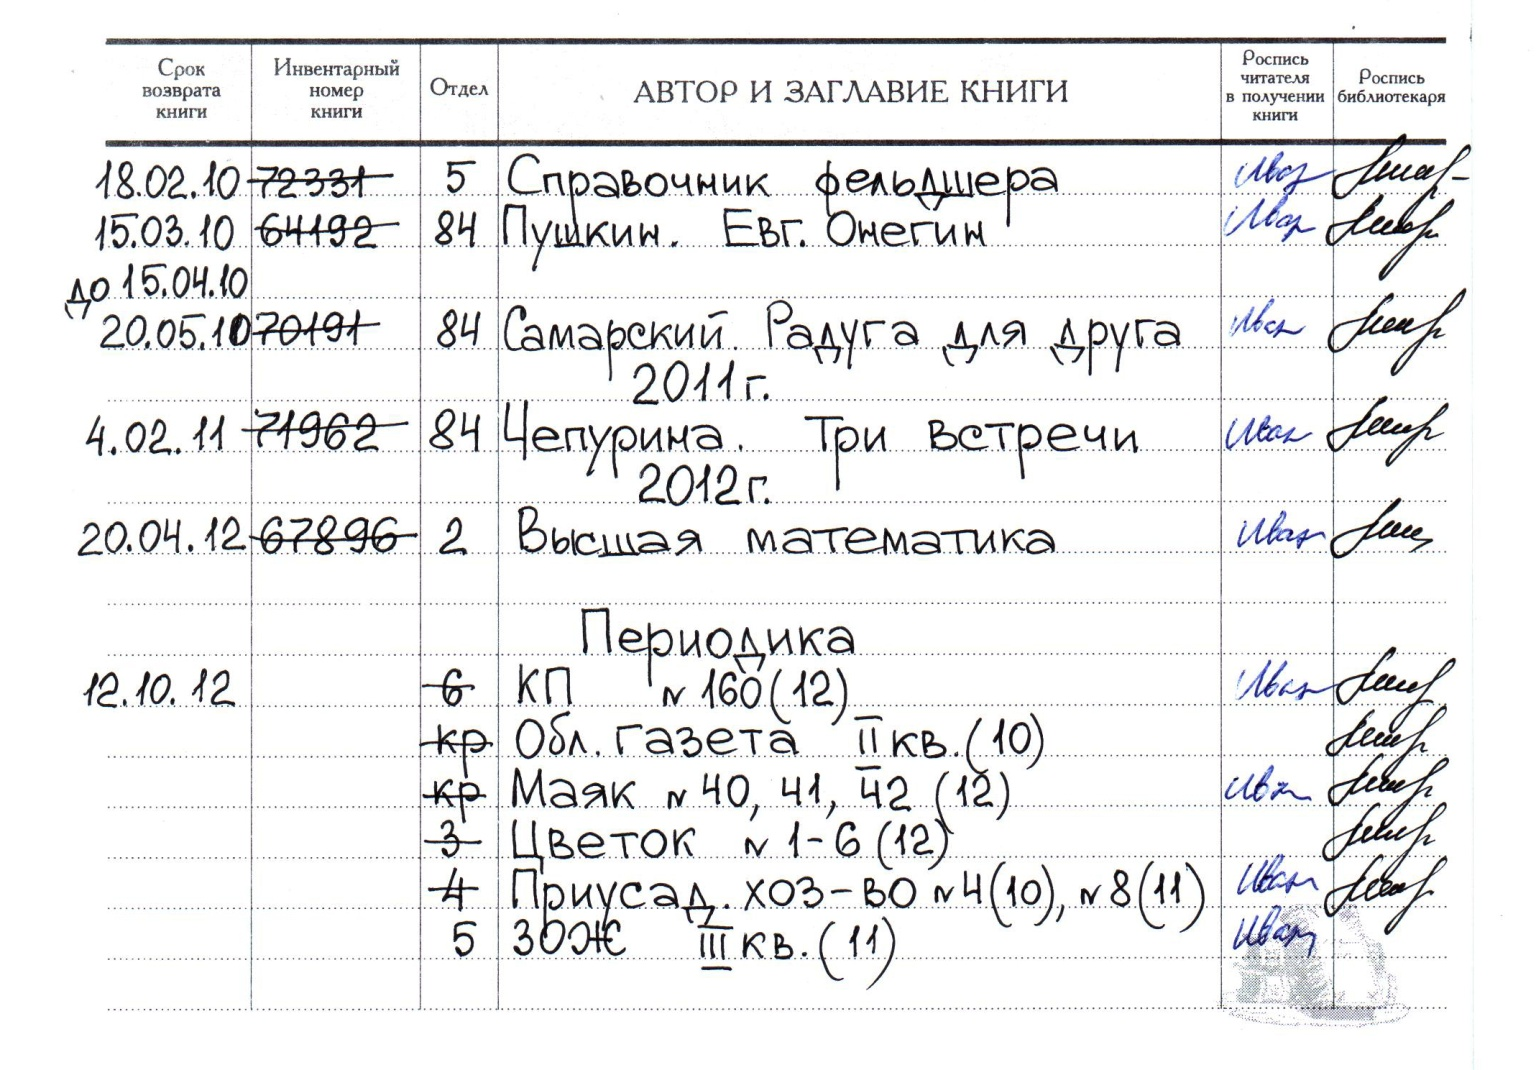 Срок возврата книги Инвентарный номер книги Отдел АВТОР И ЗАГЛАВИЕ КНИГИ Роспись читателя в получении книги Роспись библиотекаря
18.02.10 72331 5 Справочник фельдшера Иван
15.03.10 64192 84 Пушкин. Евг. Онегин Иван
до 15.04.10
20.05.10 70191 84 Самарский. Радуга для друга Иван
2011г.
4.02.11 71962 84 Чепурина. Три встречи Иван
2012г.
20.04.12 67896 2 Высшая математика Иван
Периодика
12.10.12 6 КП № 160(12) Иван
кр Обл. газета II кв. (10)
кр Маяк № 40, 41, 42 (12) Иван
3 Цветок № 1-6 (12)
4 Приусад. хоз-во № 4(10), № 8(11) Иван
5 ЗОЖ III кв. (11) Иван